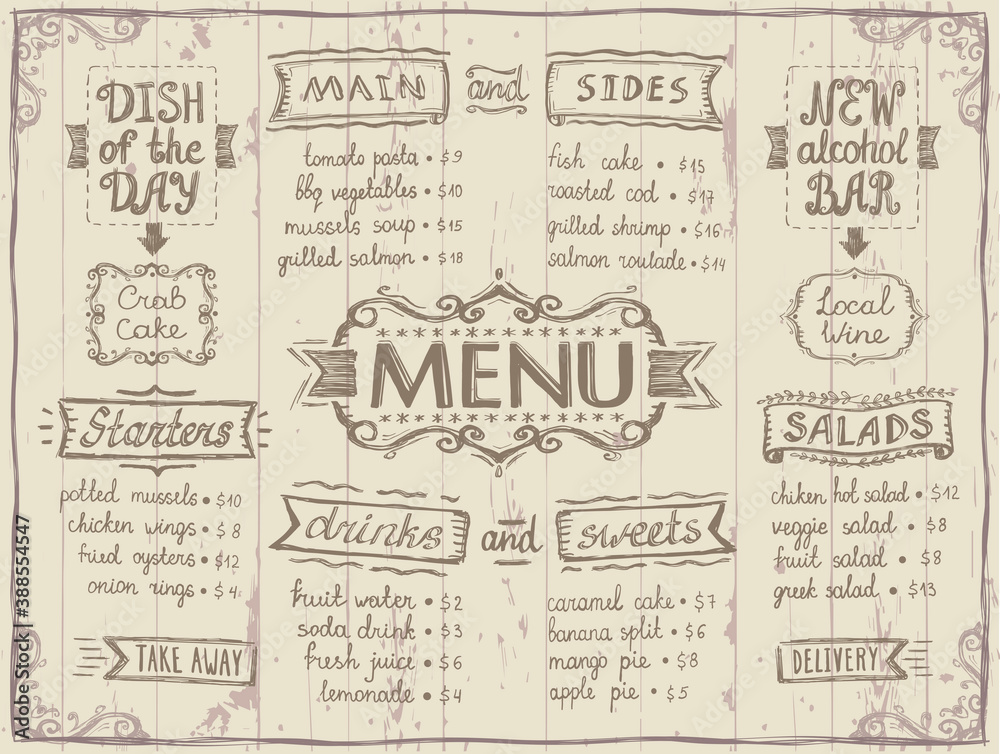 DISH
of the
DAY
Crab
Cake
MAIN and SIDES
tomato pasta • $9
bbq vegetables • $10
mussels soup • $15
grilled salmon • $18
fish cake • $15
roasted cod • $17
grilled shrimp • $16
salmon roulade • $14
NEW
alcohol
BAR
Local
Wine
MENU
Starters
potted mussels • $10
chicken wings • $8
fried oysters • $12
onion rings • $4
TAKE AWAY
drinks and sweets
fruit water • $2
soda drink • $3
fresh juice • $6
lemonade • $4
caramel cake • $7
banana split • $6
mango pie • $8
apple pie • $5
SALADS
chiken hot salad • $12
veggie salad • $8
fruit salad • $8
greek salad • $13
DELIVERY
Adobe Stock | #388554547